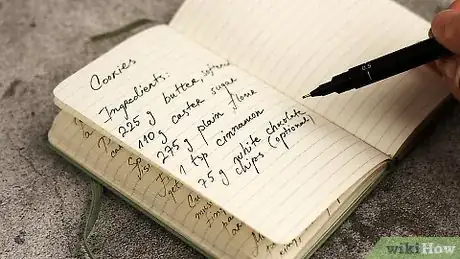 Cookies
Ingredients:
225 g butter,
110g caster sugar
275 g plain flour
1 tsp cinnamon
75 g white chocolate
chips (optional)
0.5
wikiHow